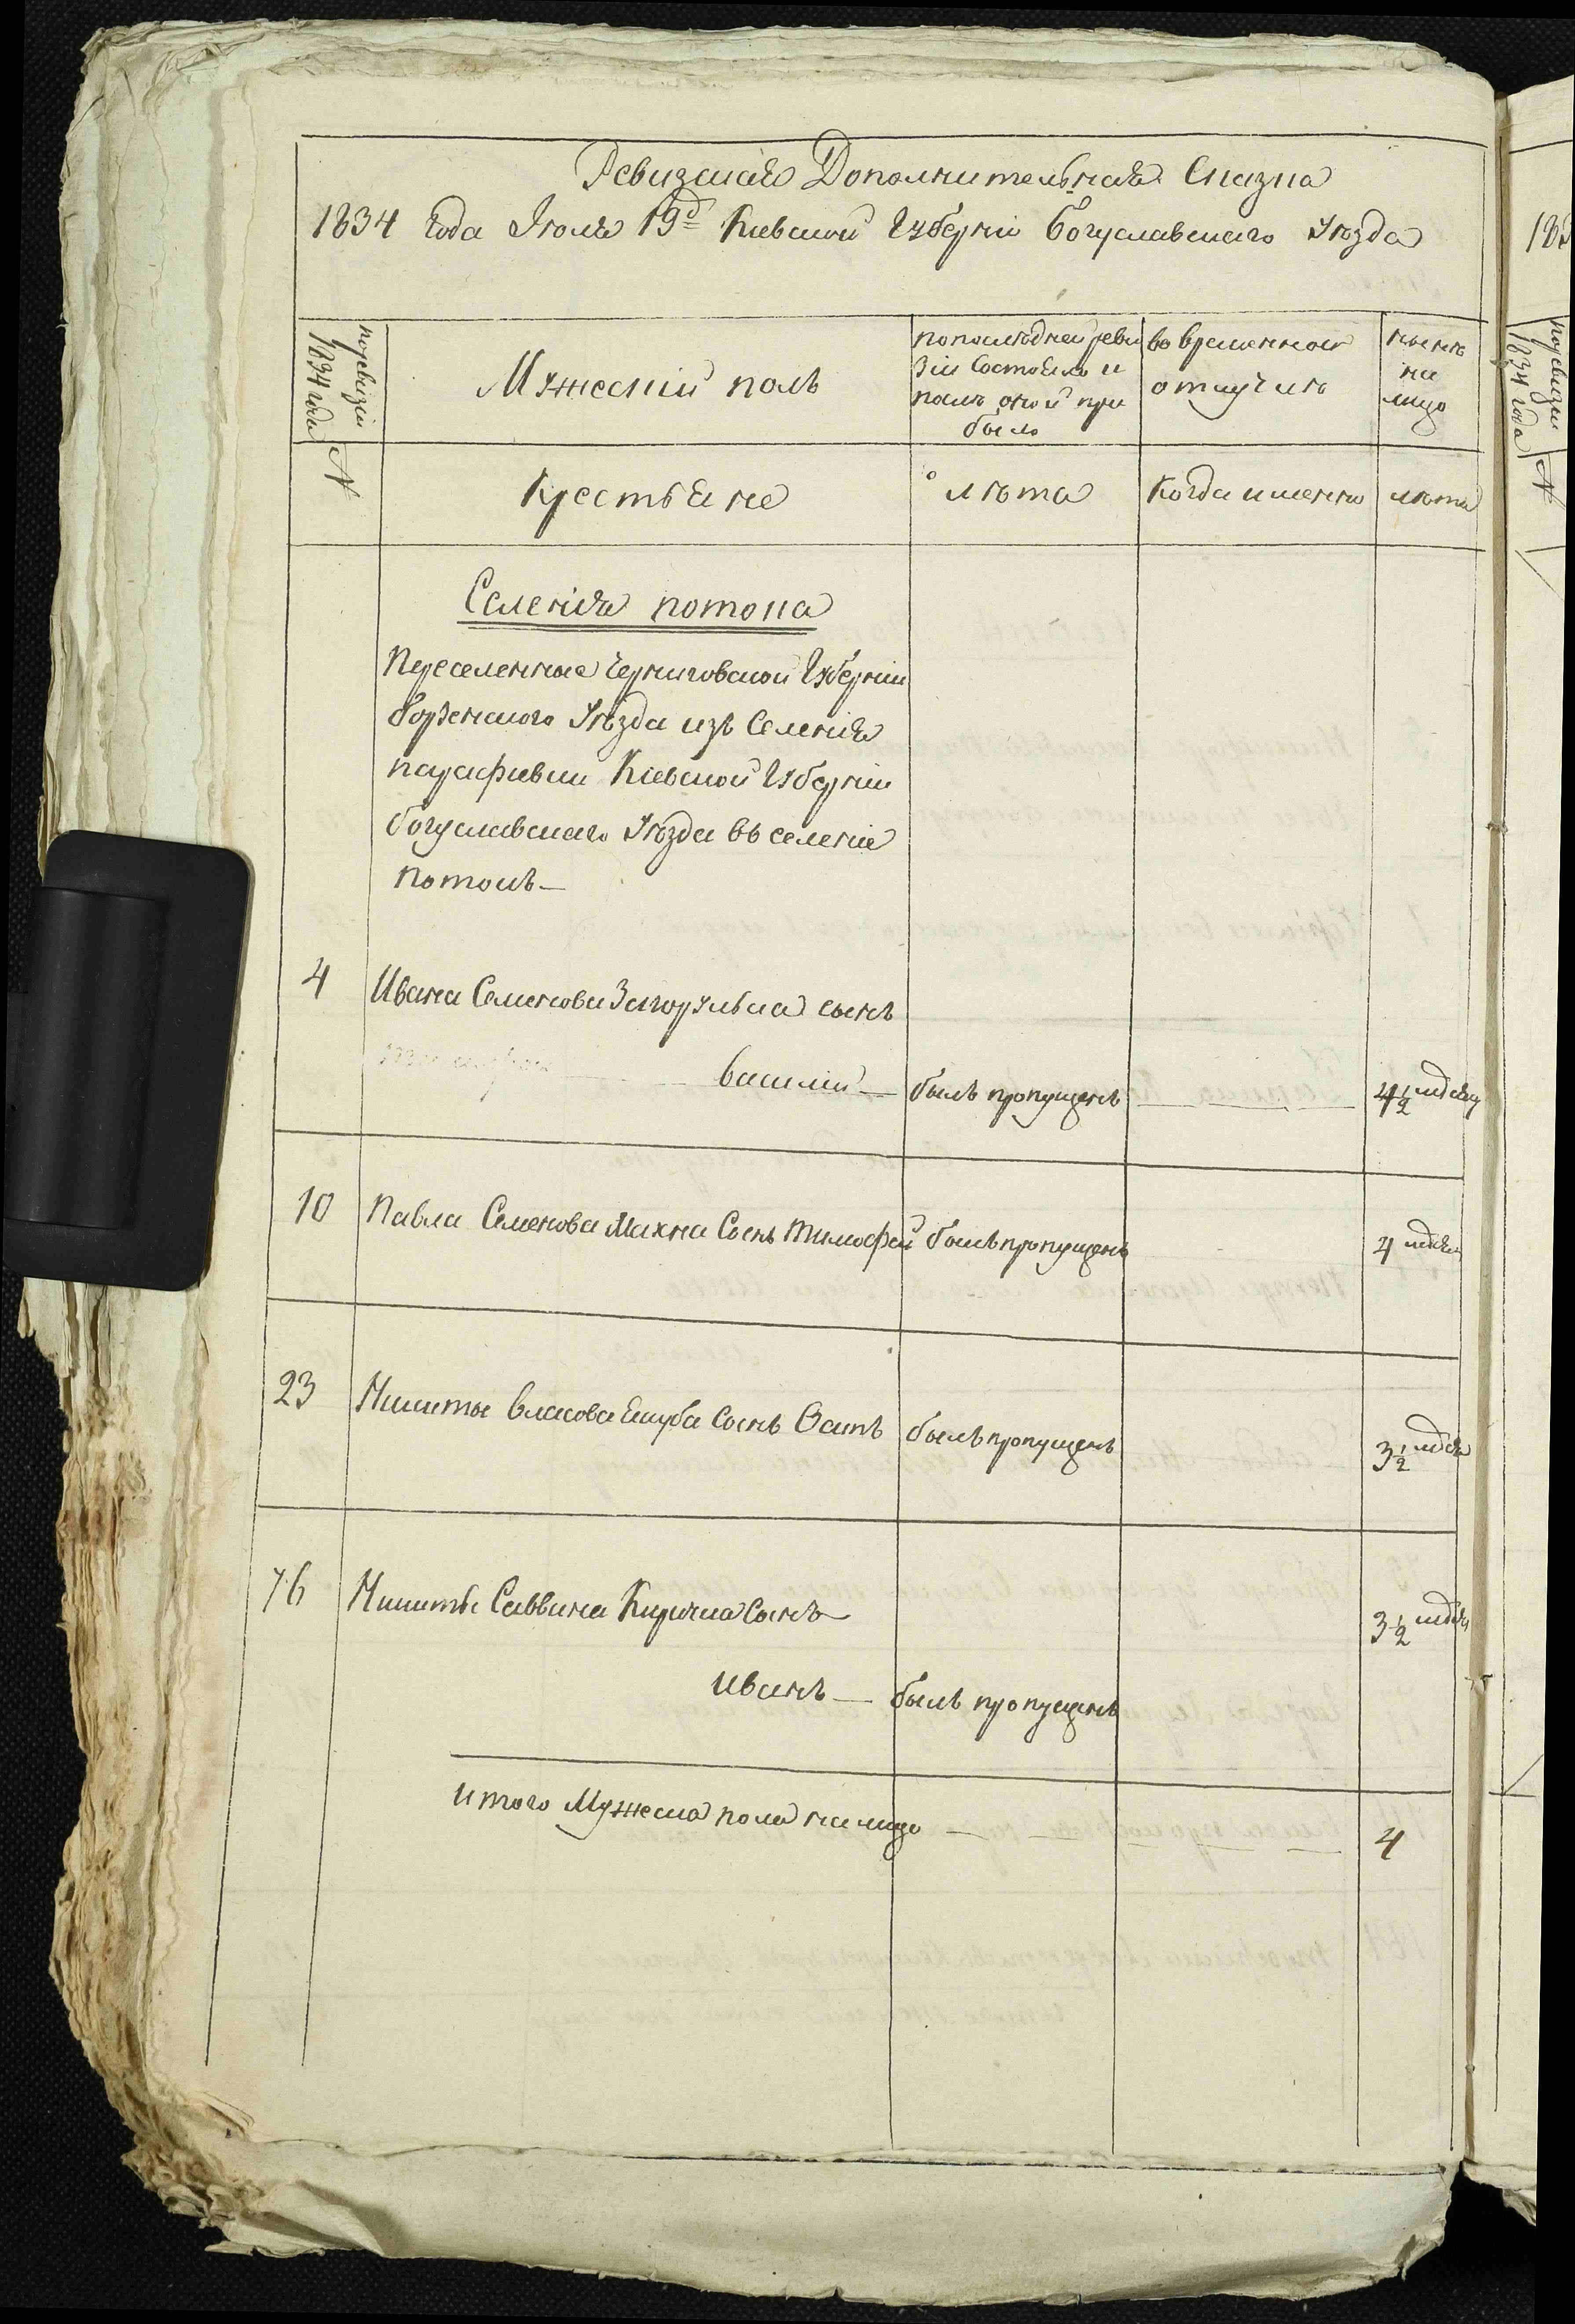 Ревизская Дополнительная Сказка
1834 Года Іюля 19д Киевской Губерніи Богуславскаго Уѣзда
поревизіи 1834 года
Мужескій полъ
попослѣдней реви
зіи Состояло и
послѣ оной при
было
во временной
отлучкѣ
нынѣ
на
лицо
№
Крестьяне
лѣта
Когда именно
лѣта
Селенія потока
Переселенные Черниговской Губерніи
борзенского Уѣзда изъ Селенія
парафивки Кіевской Губерніи
богуславскаго Уѣзда въ селеніе
потокъ —
4 Ивана Семенова Загорулька сынъ
василій — былъ пропущенъ 4½ мѣсяц
10 Павла Семенова Махна Сынъ Тимофей былъ пропущенъ 4 мѣсяц
23 Никиты власова Екуба Сынъ Осипъ былъ пропущенъ 3½ мѣся
76 Никиты Саввина Кирика Сынъ 3½ мѣся
иванъ — былъ пропущенъ
итого Мужеска пола налицо — 4